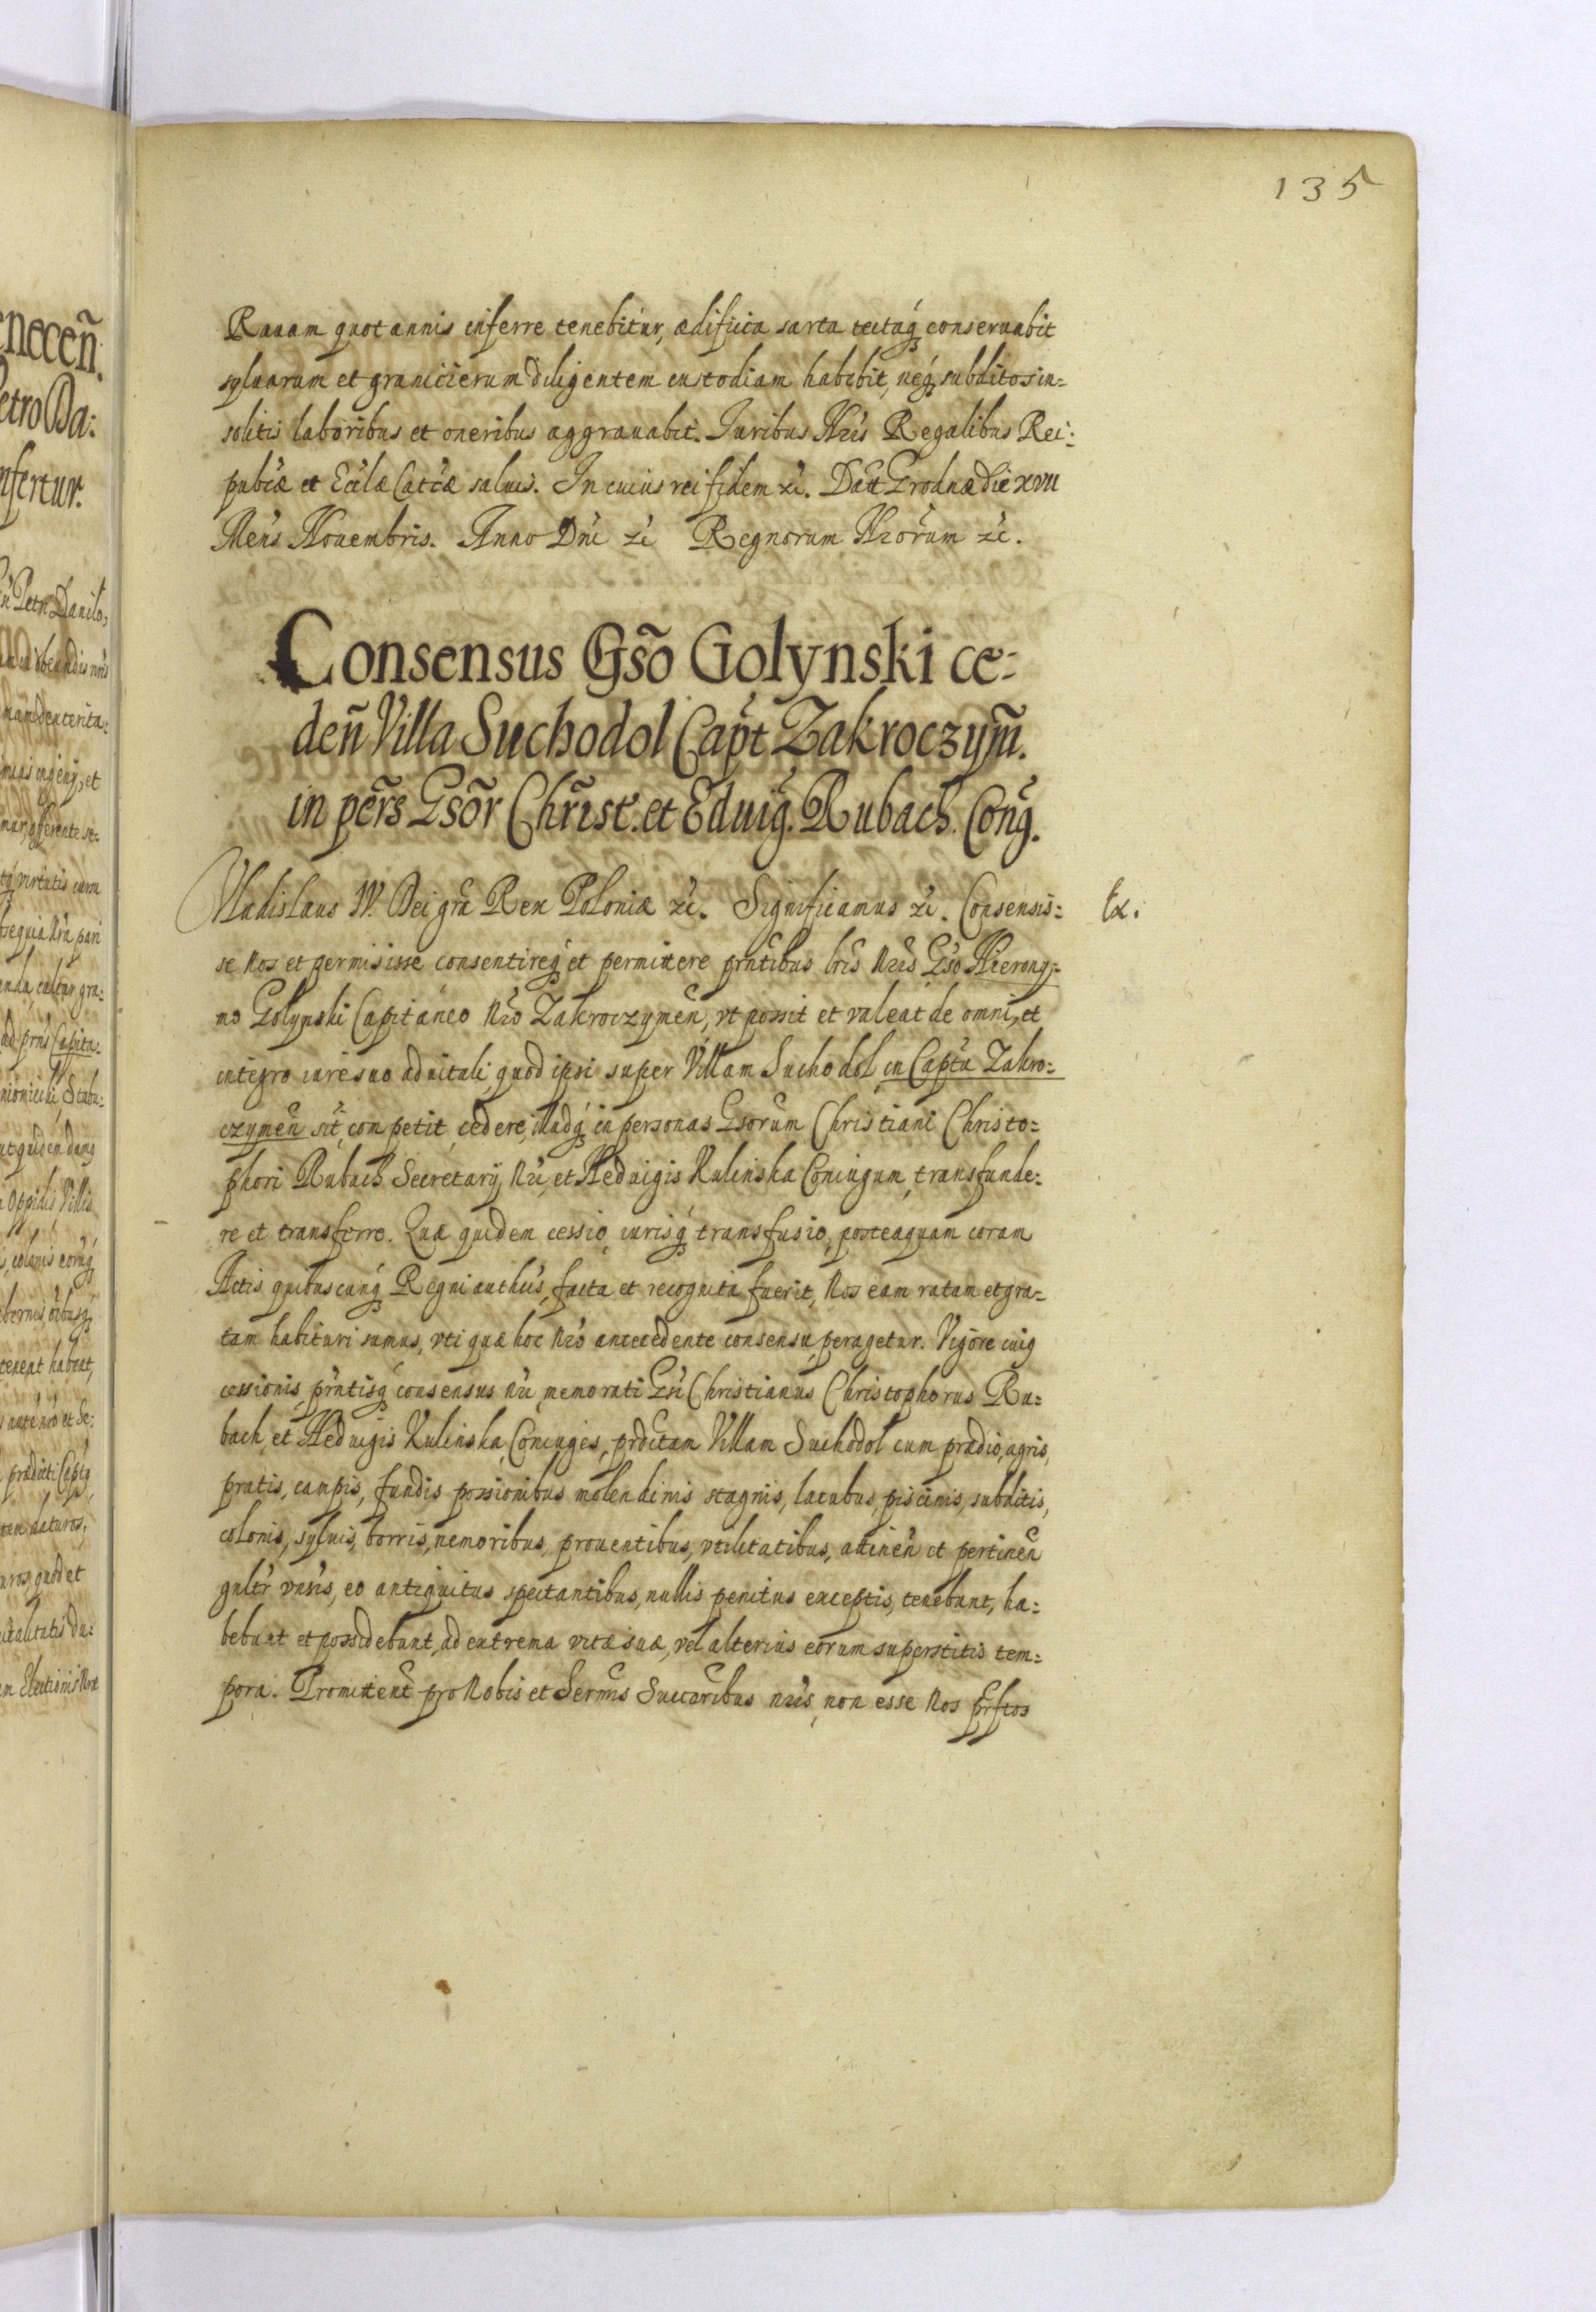 135
Rauam quot annis inferre tenebitur, ædificia sarta tectaq́ȝ conseruabit
syluarum et granicierum diligentem custodiam habebit, neq́ȝ subditos in=
solitis laboribus et oneribus aggrauabit. Iuribus Nr̃is Regalibus Rei=
pub́cæ et Ecc̃læ Cattc̃æ saluis. In cuius rei fidem zc̃. Datt Grodnæ die XVII
Meñs Nouembris. Anno Dñi zc̃ Regnorum Nr̃orum zc̃.
Consensus Gsõ Golynski ce=
deñ Villa Suchodol Capt̃ Zakroczym̃.
in per̃s Gsõr Chr̃ist. et Eduig̃. Rubach. Cong̃.
Vladislaus IV. Dei gr̃a Rex Poloniæ zc̃. Significamus zc̃. Consensis=
Ex.
se Nos et permisisse consentireq́ȝ et permittere prñtibus lr̃is Nr̃is Gs̃o Hierony=
mo Golynski Capitaneo Nr̃o Zakroczymeñ, vt possit et valeat de omni, et
integro iure suo aduitali, quod ipsi super Villam Suchodol, in Captũ Zakro=
czymeñ sit̃, competit, cedere, illudq́ȝ in personas Gsõrum Christiani Christo=
phori Rubach Secretarij Nr̃i, et Heduigis Kulinska Coniugum, transfunde=
re et transferre. Quæ quidem cessio, iurisq́ȝ transfusio, posteaquam coram
Actis quibuscunq́ȝ Regni auth́cis, facta et recognita fuerit, Nos eam ratam et gra=
tam habituri sumus, vti quæ hoc Nr̃o antecedente consensu, peragetur. Vigore cuiꝯ
cessionis, prñtisq́ȝ consensus Nr̃i, memorati Gs̃i Christianus Christophorus Ru=
bach, et Heduigis Kulinska, Coniuges, prdc̃tam Villam Suchodol cum prædio, agris,
pratis, campis, fundis possionibus molendinis stagnis, lacubus, piscinis, subditis,
colonis, syluis, borris, nemoribus, prouentibus, vtilitatibus, attineñ et pertineñ
gnltr̃ vnũis, eo antiquitus spectantibus, nullis penitus exceptis, tenebunt, ha=
bebunt et possidebunt, ad extrema vitæ suæ, vel alterius eorum superstitis tem=
pora. Promitteñt pro Nobis et Serm̃is Succr̃ibus nr̃is, non esse Nos prf̃tos